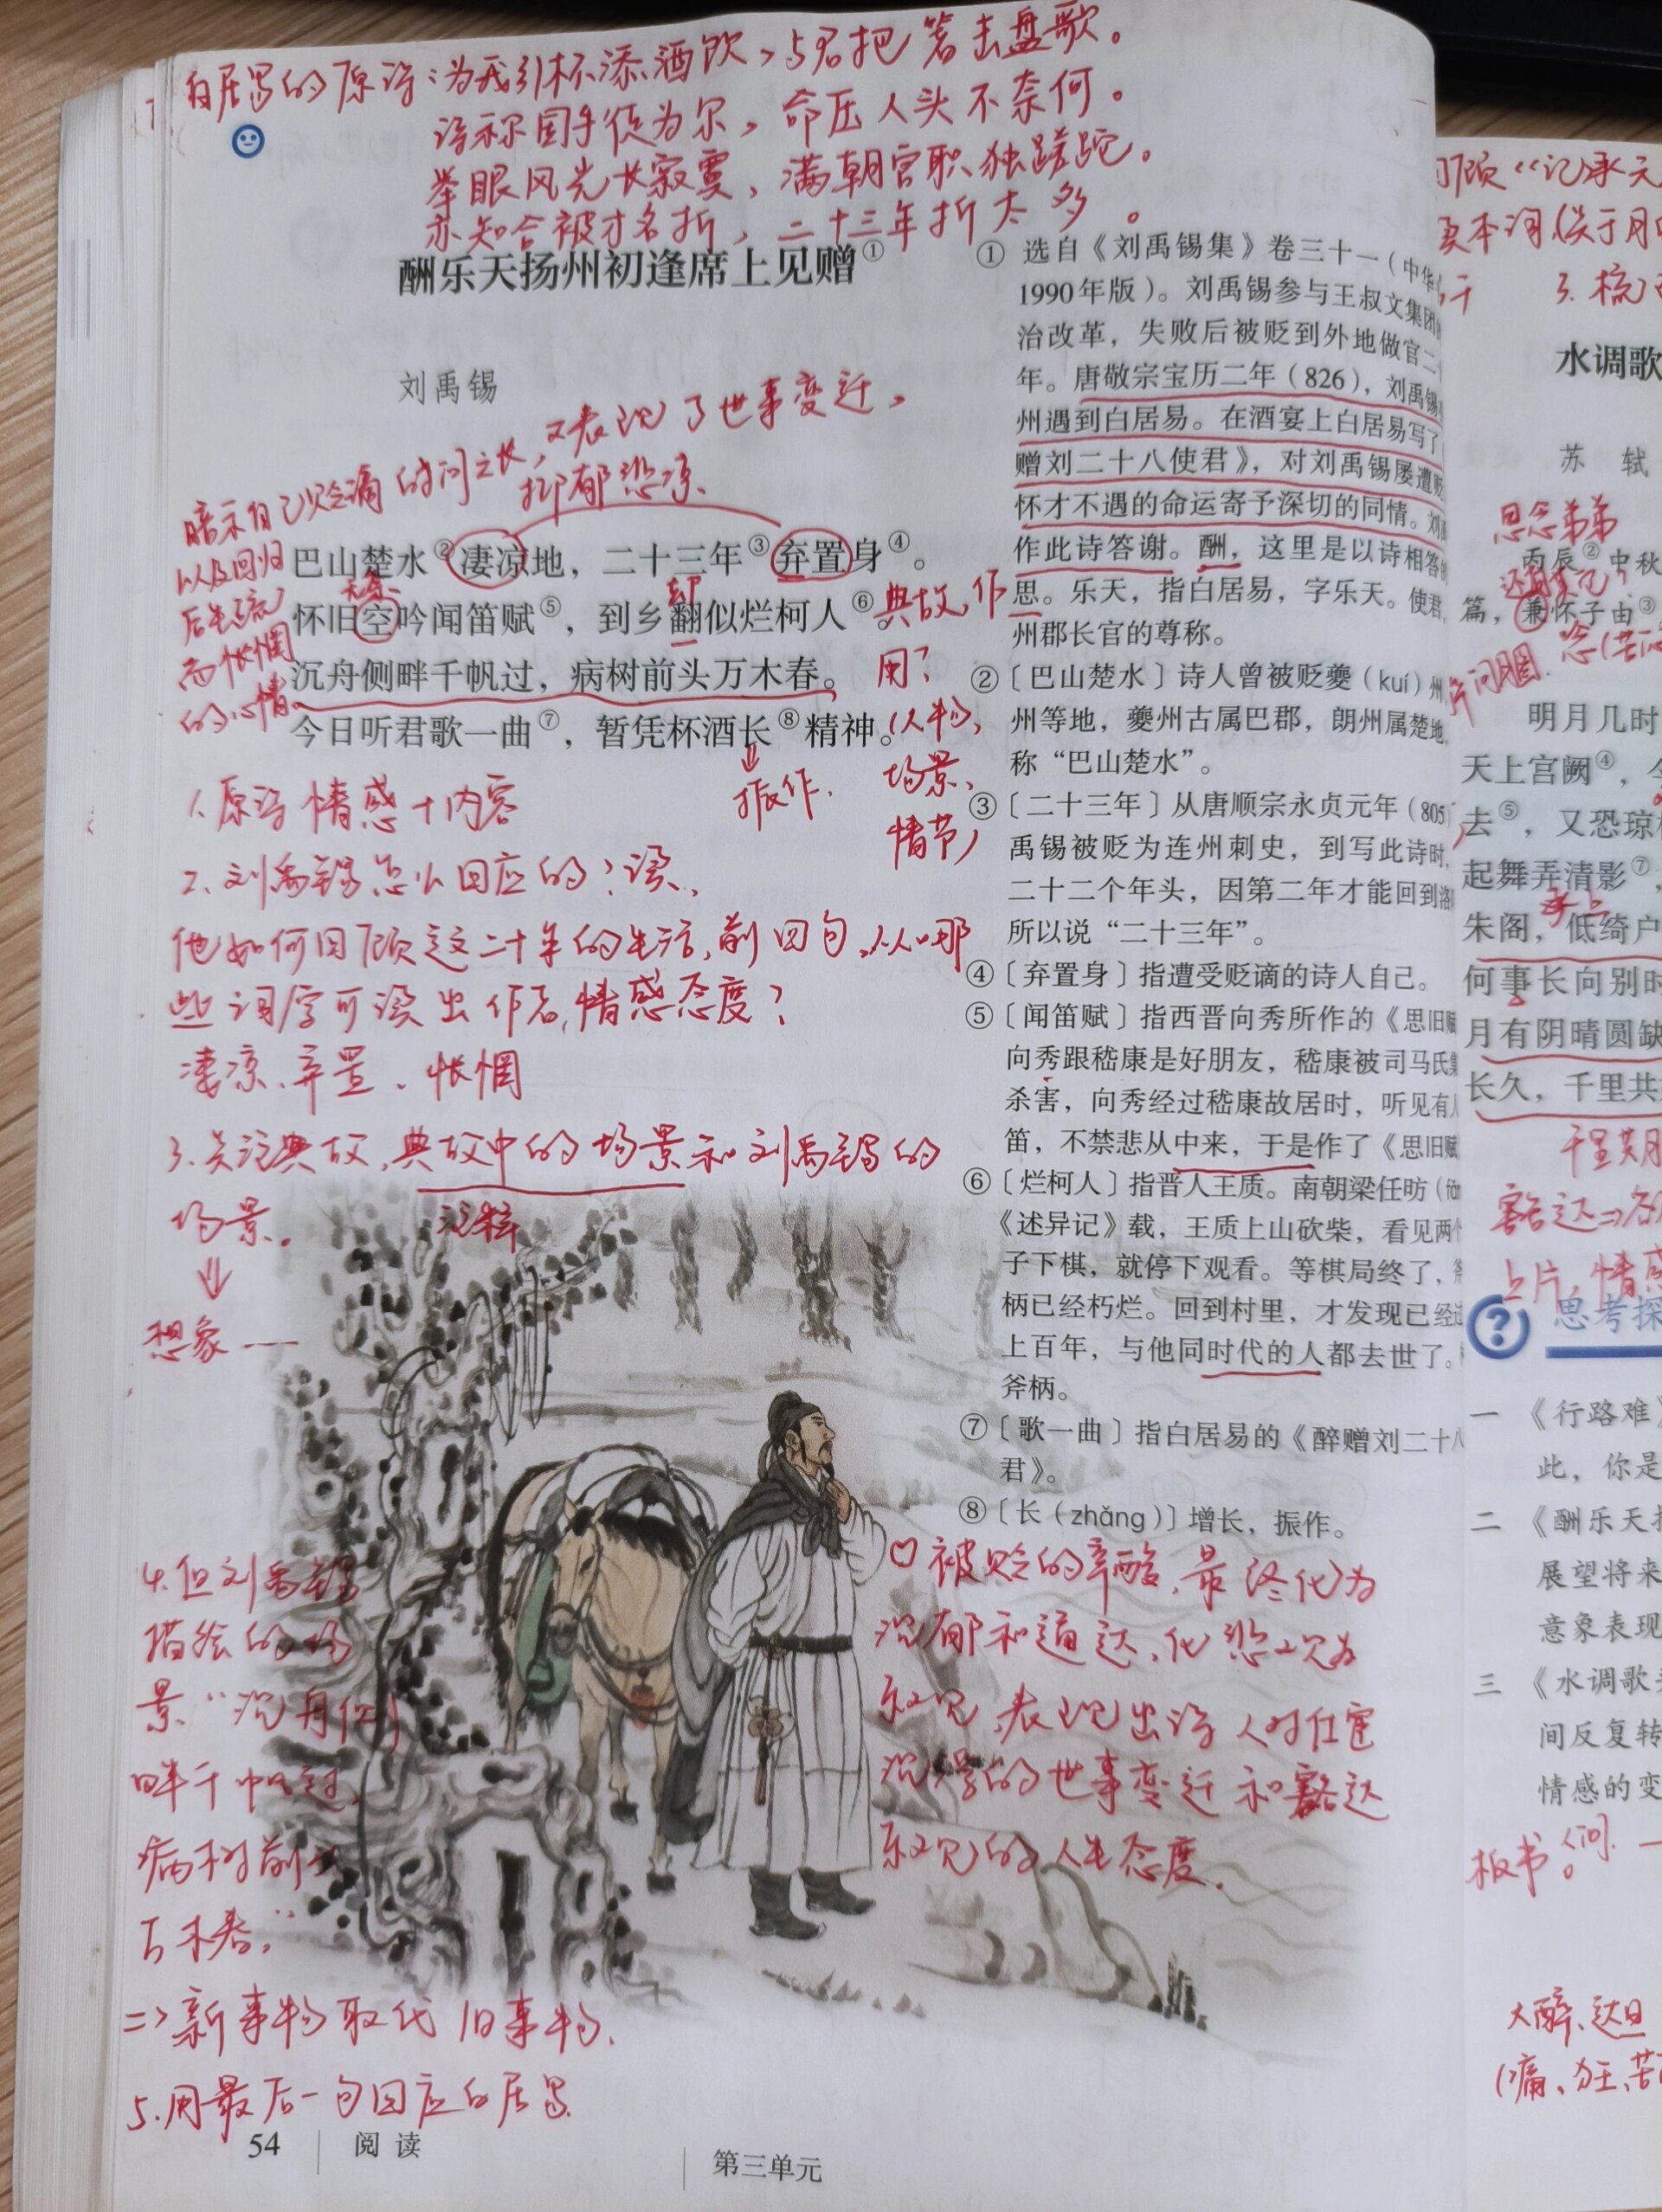 白居易的原诗:为我引杯添酒饮,与君把箸击盘歌。
诗称国手徒为尔,命压人头不奈何。
举眼风光长寂寞,满朝官职独蹉跎。
亦知合被才名折,二十三年折太多。
酬乐天扬州初逢席上见赠①
刘禹锡
暗示自己贬谪的时间之长,又表现了世事变迁,
以及回归
后生疏
而怅惘
的心情。
抑郁悲凉、
巴山楚水②凄凉地,二十三年③弃置身④。
却
怀旧空吟闻笛赋⑤,到乡翻似烂柯人⑥。
沉舟侧畔千帆过,病树前头万木春。
今日听君歌一曲⑦,暂凭杯酒长⑧精神。
振作.
典故,作
用?
(人物、
场景、
情节)
1.原诗情感+内容
2.刘禹锡怎么回应的?读、
他如何回顾这二十年的生活,前四句,从哪
些词字可读出作者,情感态度?
凄凉、弃置、怅惘
3.关注典故,典故中的场景和刘禹锡的
场景。
注释
⇓
想象——
4.但刘禹锡
描绘的场
景“沉舟侧
畔千帆过,
病树前头
万木春”
=>新事物取代旧事物.
5.用最后一句回应白居易.
① 选自《刘禹锡集》卷三十一(中华
1990年版)。刘禹锡参与王叔文集团
治改革,失败后被贬到外地做官二
年。唐敬宗宝历二年(826),刘禹锡
州遇到白居易。在酒宴上白居易写了
赠刘二十八使君》,对刘禹锡屡遭贬
怀才不遇的命运寄予深切的同情。刘
作此诗答谢。酬,这里是以诗相答
思。乐天,指白居易,字乐天。使君,
州郡长官的尊称。
②〔巴山楚水〕诗人曾被贬夔(kuí)州、
州等地,夔州古属巴郡,朗州属楚地,
称“巴山楚水”。
③〔二十三年〕从唐顺宗永贞元年(805
禹锡被贬为连州刺史,到写此诗时,
二十二个年头,因第二年才能回到洛
所以说“二十三年”。
④〔弃置身〕指遭受贬谪的诗人自己。
⑤〔闻笛赋〕指西晋向秀所作的《思旧赋
向秀跟嵇康是好朋友,嵇康被司马氏集
杀害,向秀经过嵇康故居时,听见有人
笛,不禁悲从中来,于是作了《思旧赋
⑥〔烂柯人〕指晋人王质。南朝梁任昉(fǎn
《述异记》载,王质上山砍柴,看见两个
子下棋,就停下观看。等棋局终了,斧
柄已经朽烂。回到村里,才发现已经过
上百年,与他同时代的人都去世了。
斧柄。
⑦〔歌一曲〕指白居易的《醉赠刘二十八
君》。
⑧〔长(zhǎng)〕增长,振作。
被贬的辛酸,最终化为
沉郁和通达,化悲观为
乐观,表现出诗人对仕宦
沉浮的世事变迁和豁达
乐观的人生态度.
54
阅读
第三单元
回顾《记承天
3.梳
水调歌
苏 轼
思念弟弟
丙辰②中秋
篇,兼怀子由③
明月几时
天上宫阙④,今
去⑤,又恐琼
起舞弄清影⑦,
朱阁,低绮户
何事长向别时
月有阴晴圆缺
长久,千里共
千里共月
豁达=>
上片,情感
思考探
一 《行路难》
此,你是
二 《酬乐天扬
展望将来
意象表现
三 《水调歌头
间反复转
情感的变
板书
大醉、达旦
(痛、狂、苦